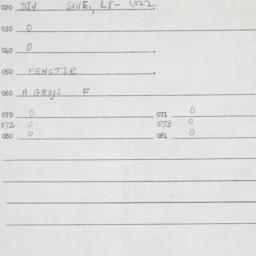 020 DI4 SIVE, L8- (022
030 0
040 0
050 FENCT3R
060 A GROJS F
070 0 071 0
072 0 073 0
080 0 081 0